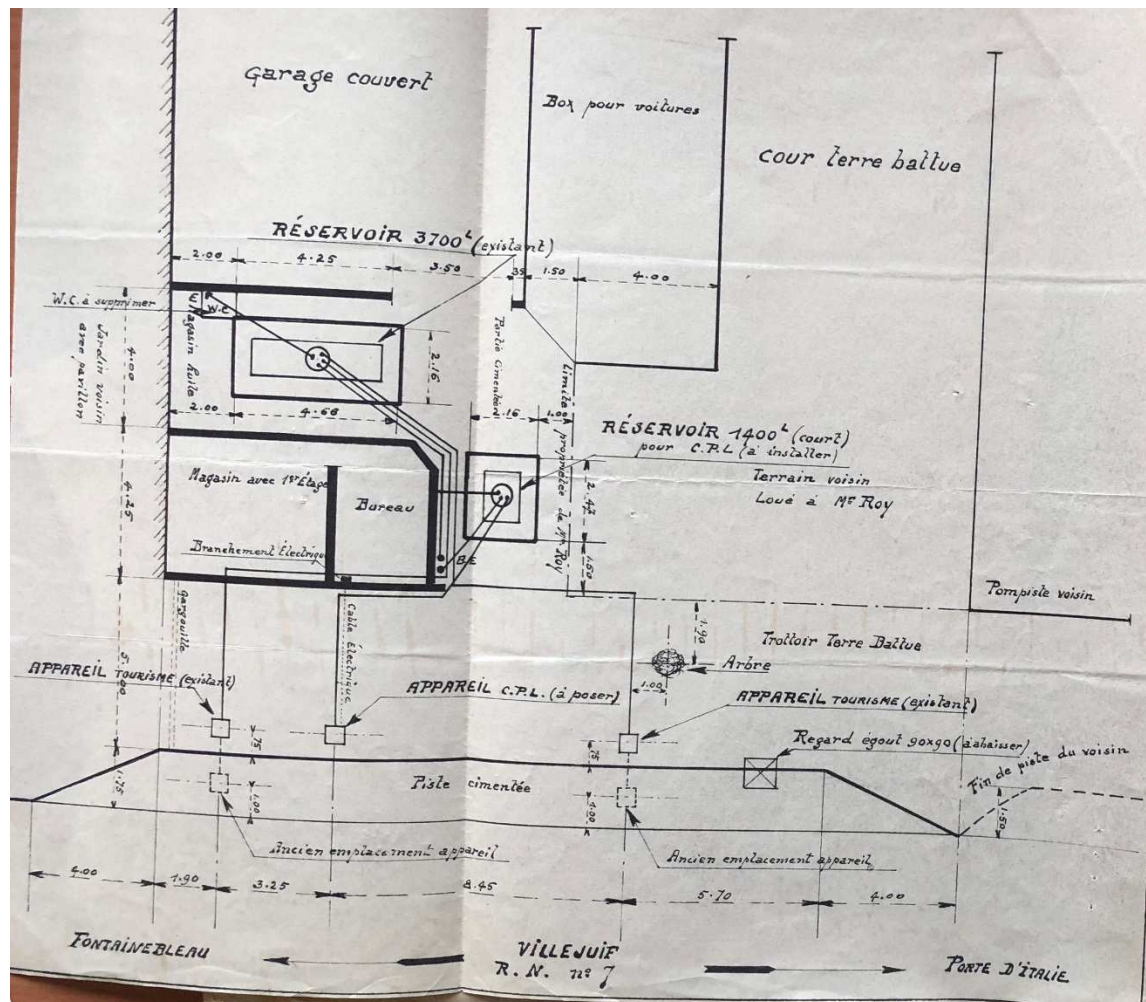 Garage couvert
Box pour voitures
Cour terre battue
RÉSERVOIR 3700ᴸ (existant)
2.00
4.25
3.50
35
1.50
4.00
W.C. à supprimer
W.C
Magasin huile
Jardin voisin
avec pavillon
4.00
2.16
Partie Cimentée
Limite propriétée de Mr Roy
2.00
4.68
2.16
1.00
RÉSERVOIR 1400ᴸ (court)
pour C.P.L (à installer)
Terrain voisin
Loué à Mr Roy
Magasin avec 1er Étage
Bureau
4.25
2.47
Branchement Électrique
B.E
1.50
Pompiste voisin
gargouille
Cable Électrique
1.90
Trottoir Terre Battue
Arbre
5.00
APPAREIL TOURISME (existant)
APPAREIL C.P.L. (à poser)
1.00
APPAREIL TOURISME (existant)
.75
.75
Regard égout 90x90 (à abaisser)
1.75
Piste cimentée
Fin de piste du voisin
1.00
1.00
1.50
Ancien emplacement appareil
Ancien emplacement appareil
4.00
1.90
3.25
8.45
5.70
4.00
FONTAINEBLEAU
VILLEJUIF
R.N. nº 7
PORTE D'ITALIE